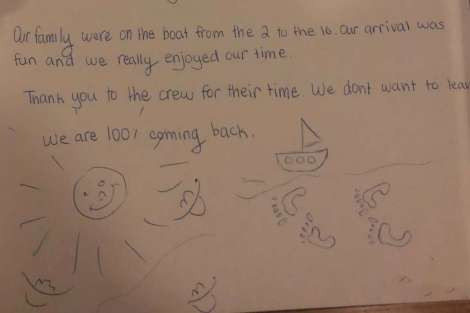 Our family were on the boat from the 2 to the 10. Our arrival was
fun and we really enjoyed our time.
Thank you to the crew for their time. We dont want to leav
We are 100% coming back.